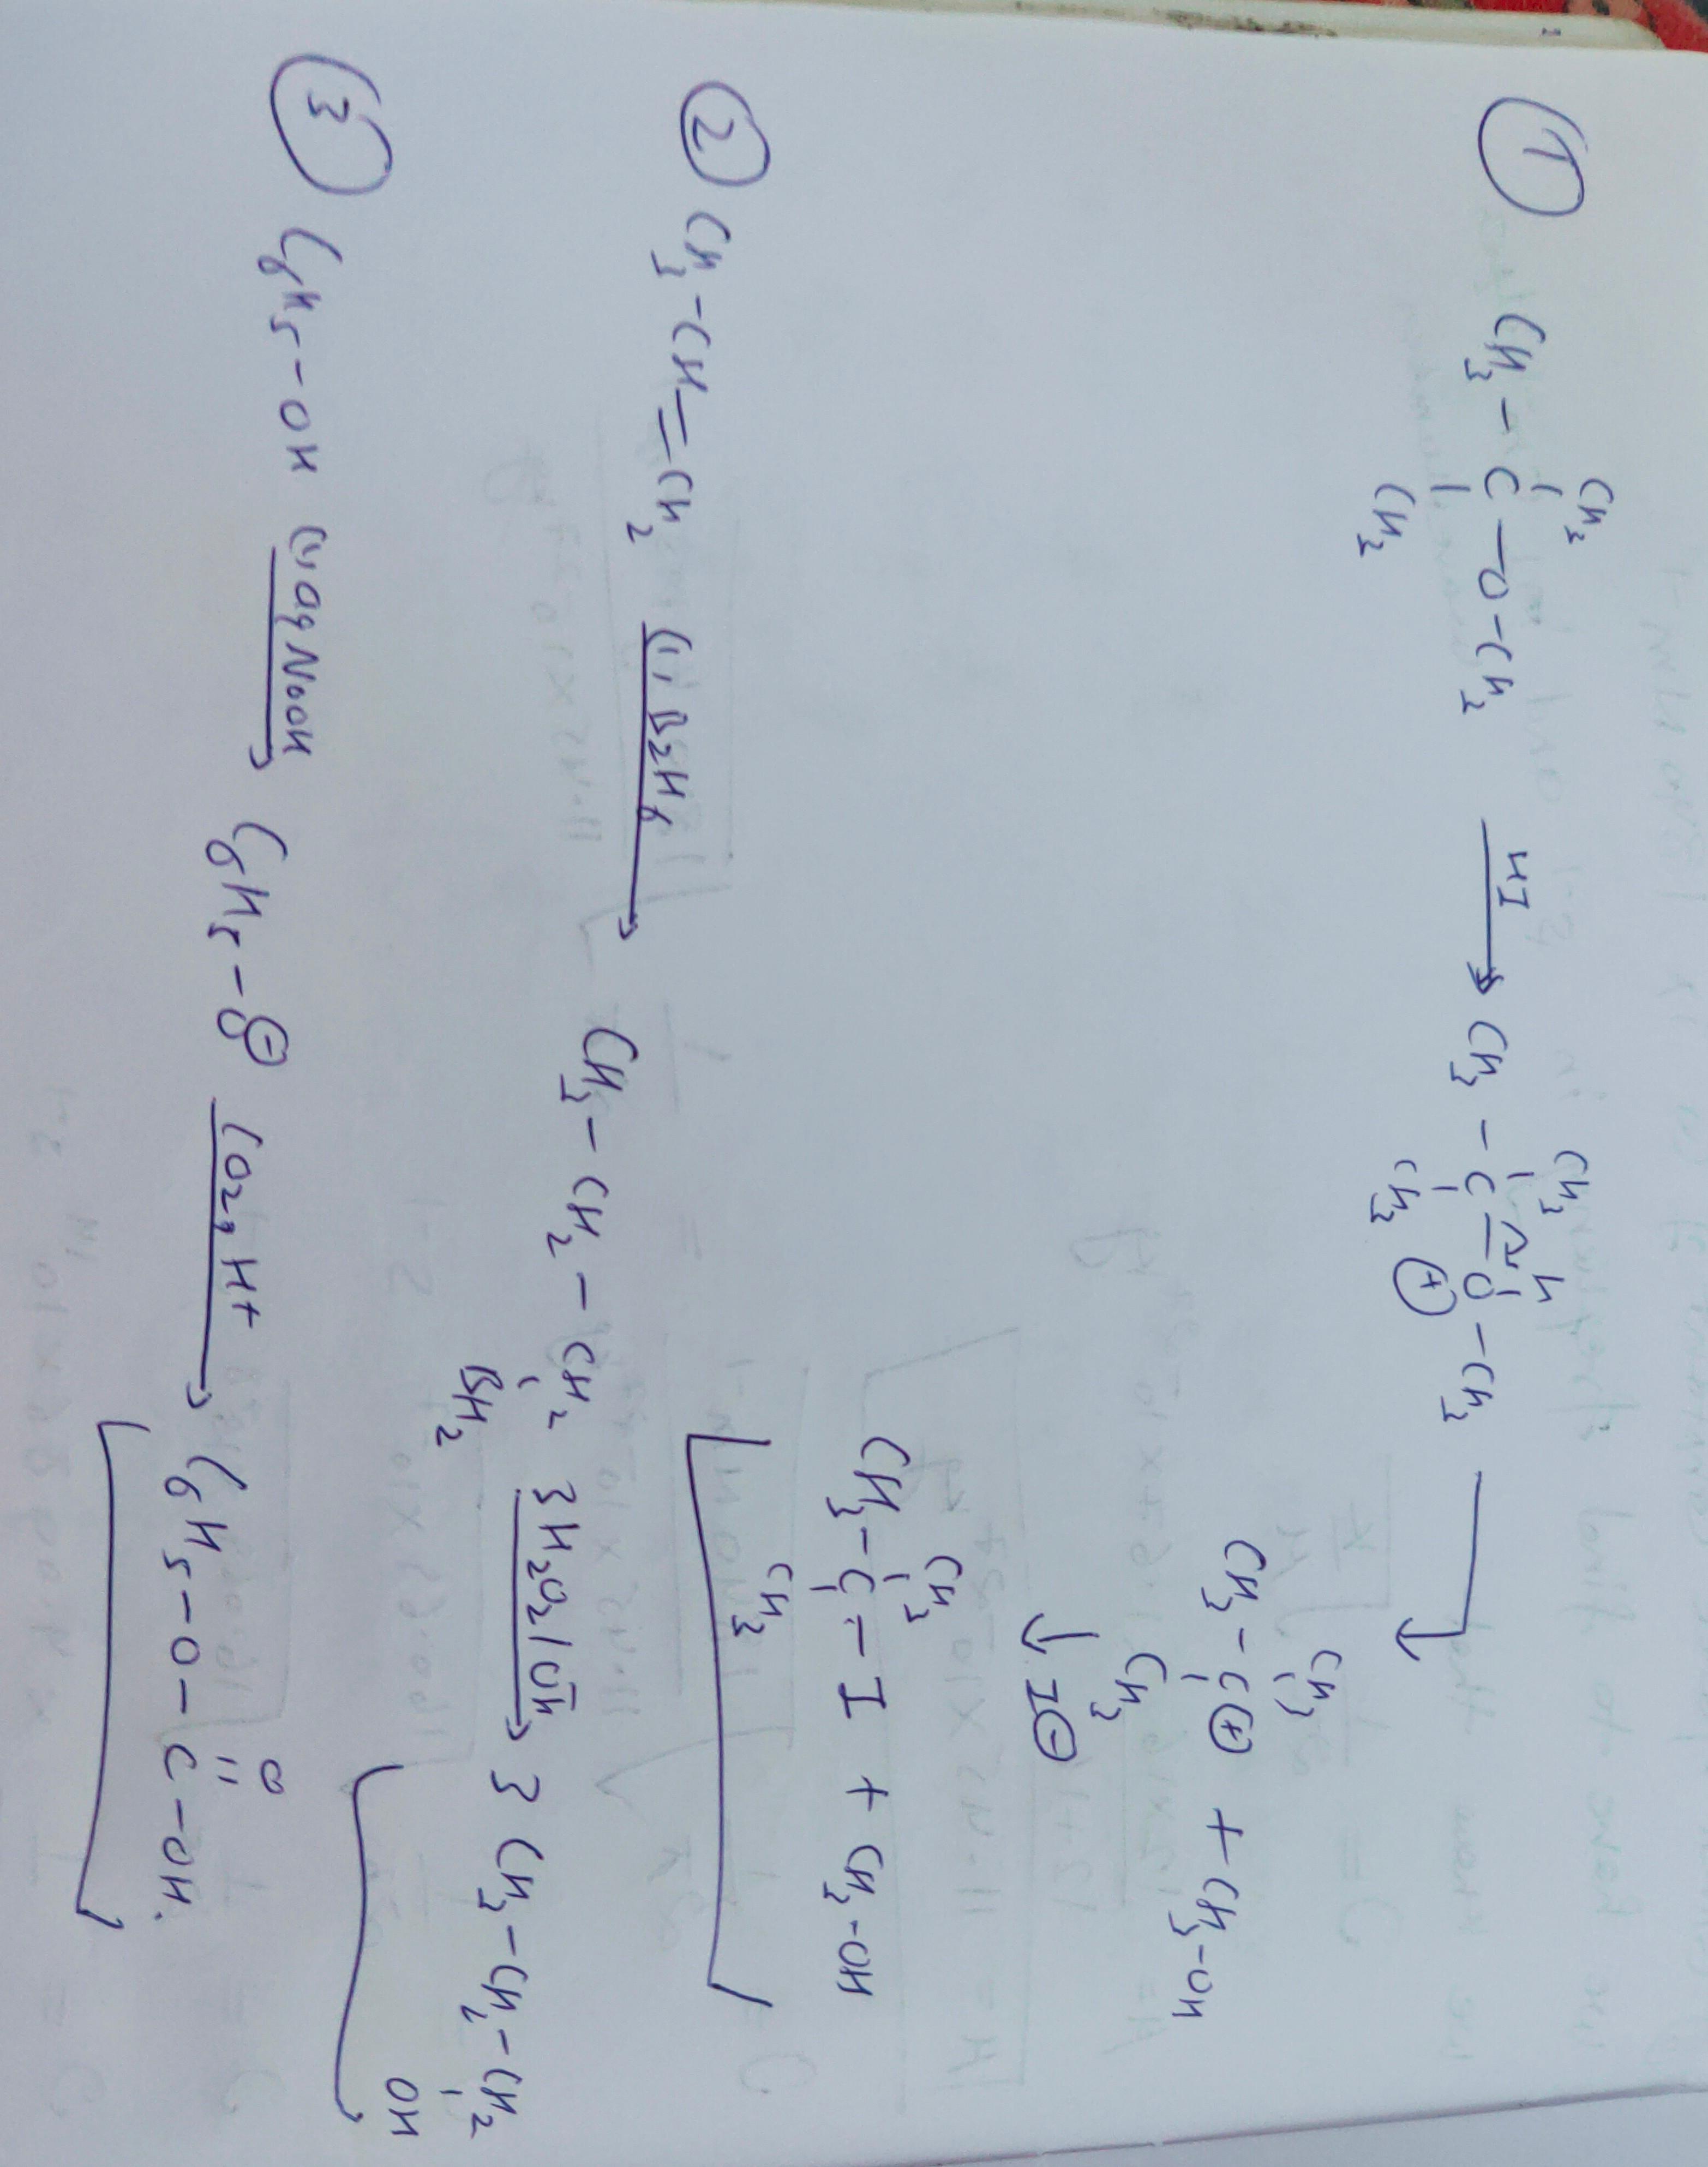 ①
CH3
CH3 - C - O - CH3 HI→ CH3 - C - O - CH3
CH3
CH3 H
CH3 ⊕
CH3
CH3 - C ⊕ + CH3 - OH
CH3
↓ I⊖
CH3
CH3 - C - I + CH3 - OH
CH3
② CH3 - CH = CH2 (i) B2H6→ CH3 - CH2 - CH2 3H2O2 / OH-→ 3 CH3 - CH2 - CH2
BH2 OH
③ C6H5 - OH (i) aq NaOH→ C6H5 - O⊖ CO2, H+→ C6H5 - O - C - OH.
O